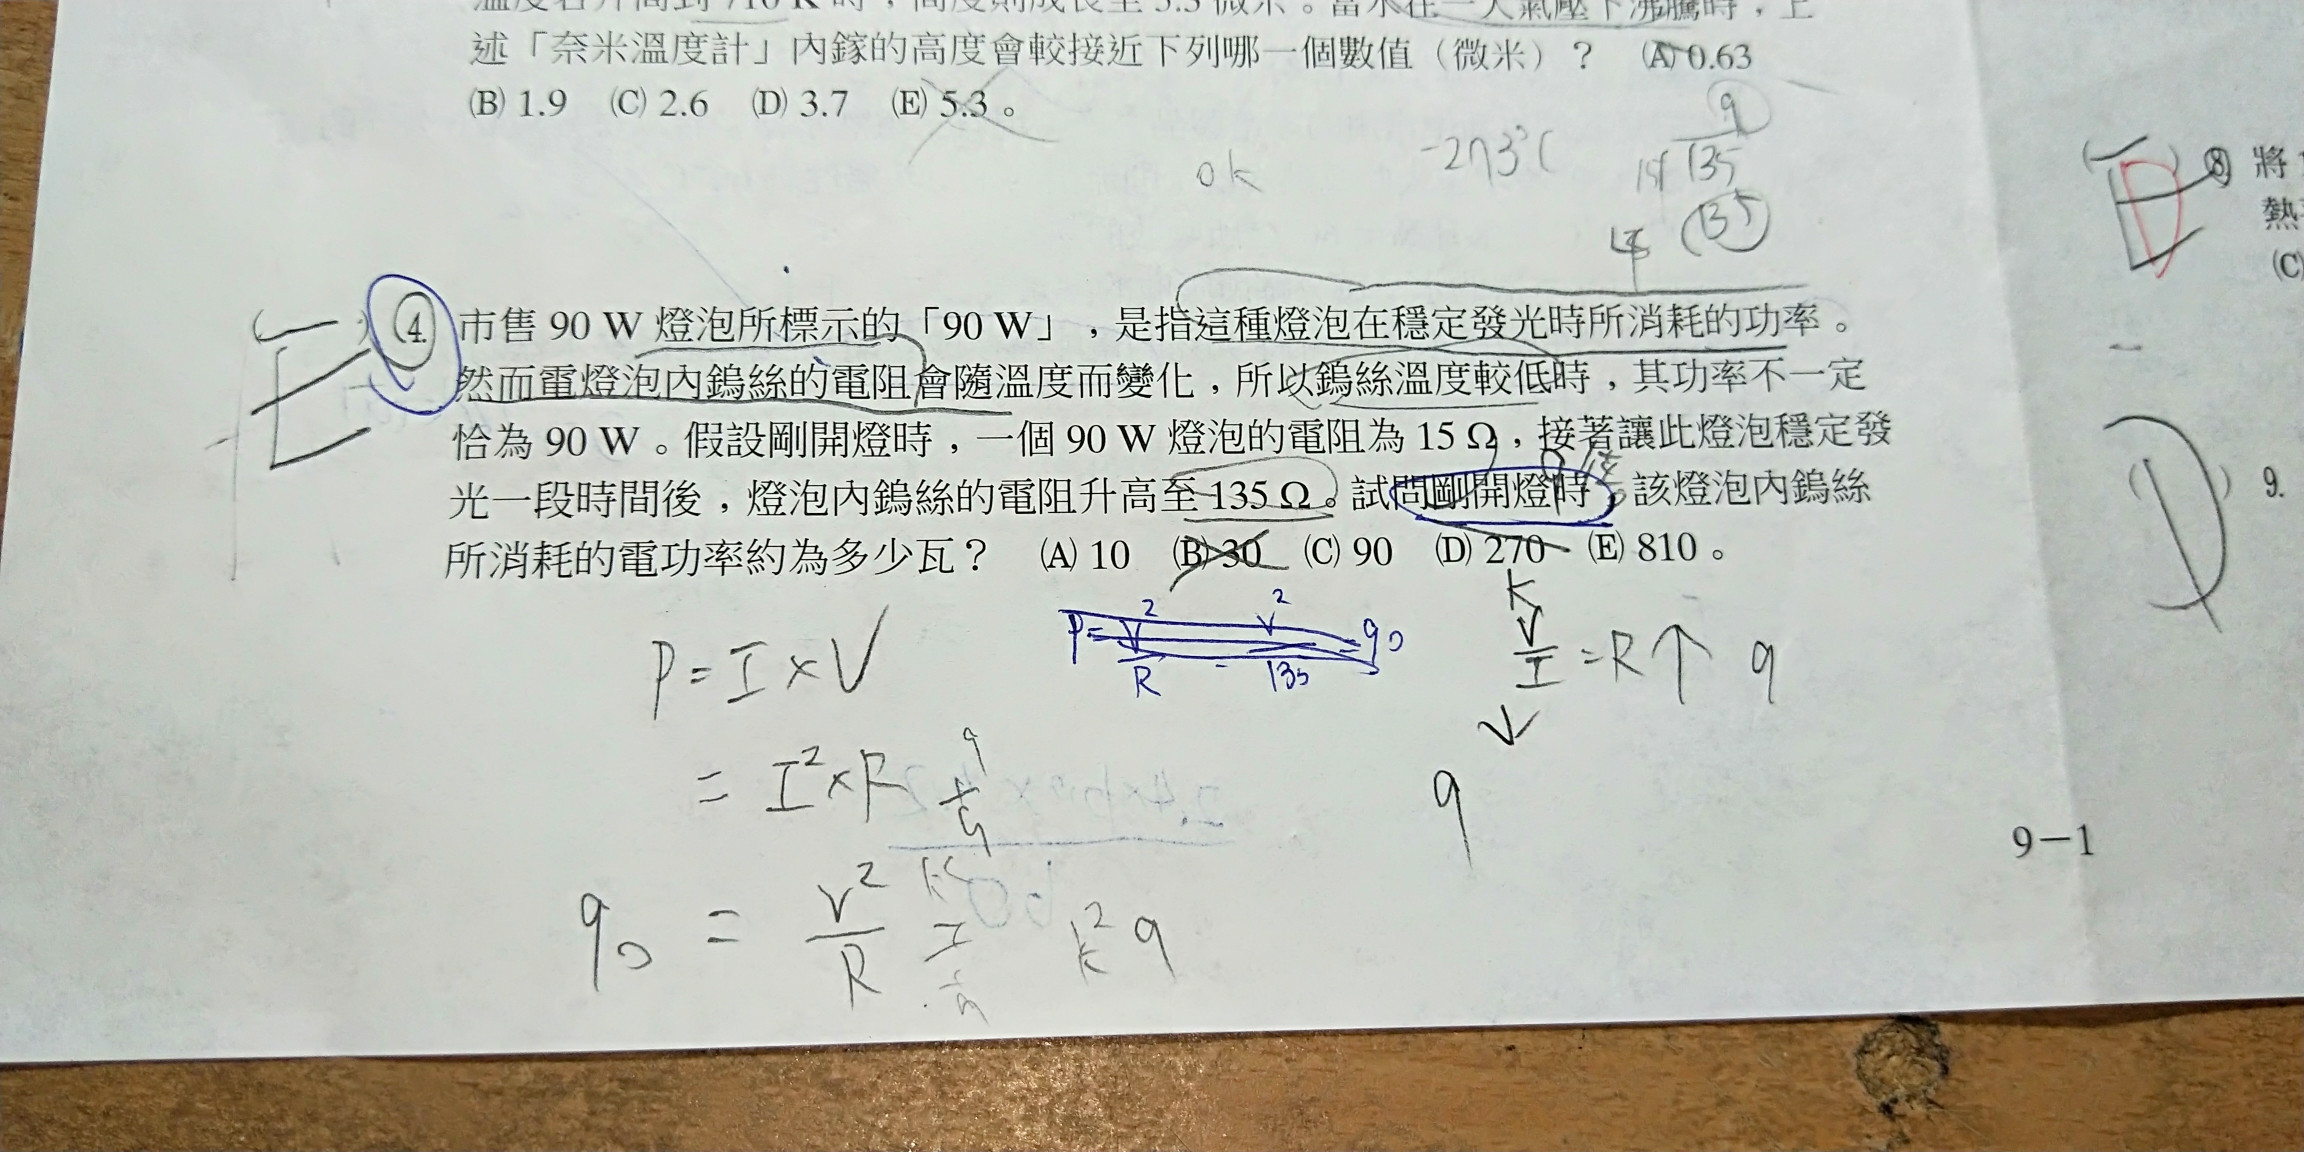 述「奈米溫度計」內鎵的高度會較接近下列哪一個數值（微米）？ (A) 0.63
(B) 1.9 (C) 2.6 (D) 3.7 (E) 5.3。
9
135
135
0k
-273℃
4. 市售 90 W 燈泡所標示的「90 W」，是指這種燈泡在穩定發光時所消耗的功率。
然而電燈泡內鎢絲的電阻會隨溫度而變化，所以鎢絲溫度較低時，其功率不一定
恰為 90 W。假設剛開燈時，一個 90 W 燈泡的電阻為 15 Ω，接著讓此燈泡穩定發
光一段時間後，燈泡內鎢絲的電阻升高至 135 Ω。試問剛開燈時，該燈泡內鎢絲
所消耗的電功率約為多少瓦？ (A) 10 (B) 30 (C) 90 (D) 270 (E) 810。
E
P = I × V
= I² × R
90 = V²/R
k² 9
P = V²/R = V²/135 = 90
k
V/I = R↑ 9
9
9－1
E
D
8. 將
熱
(C)
D
9.